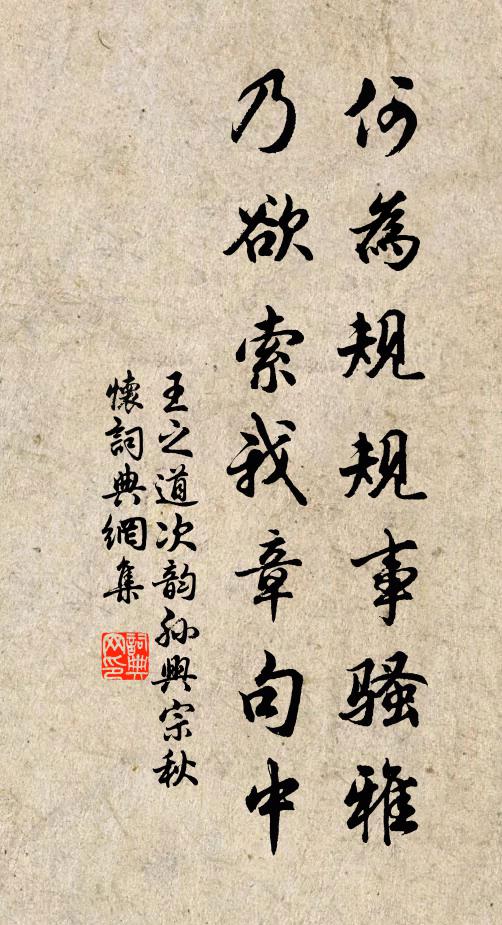 何為規規事騷雅
乃欲索我章句中
王之道次韵孙興宗秋
懷詞典網集
詞典